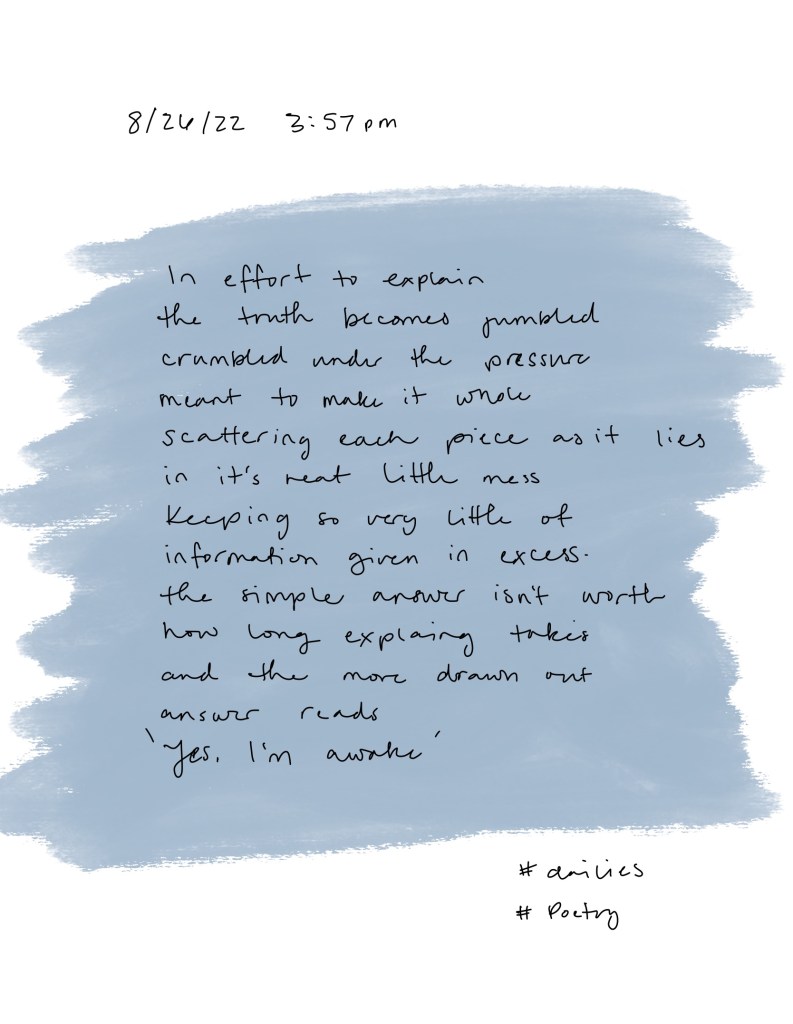 8/26/22 3:57 pm
In effort to explain
the truth becomes jumbled
crumbled under the pressure
meant to make it whole
scattering each piece as it lies
in it's neat little mess
Keeping so very little of
information given in excess.
the simple answer isn't worth
how long explaing takes
and the more drawn out
answer reads
'Yes, I'm awake'
# dailies
# Poetry